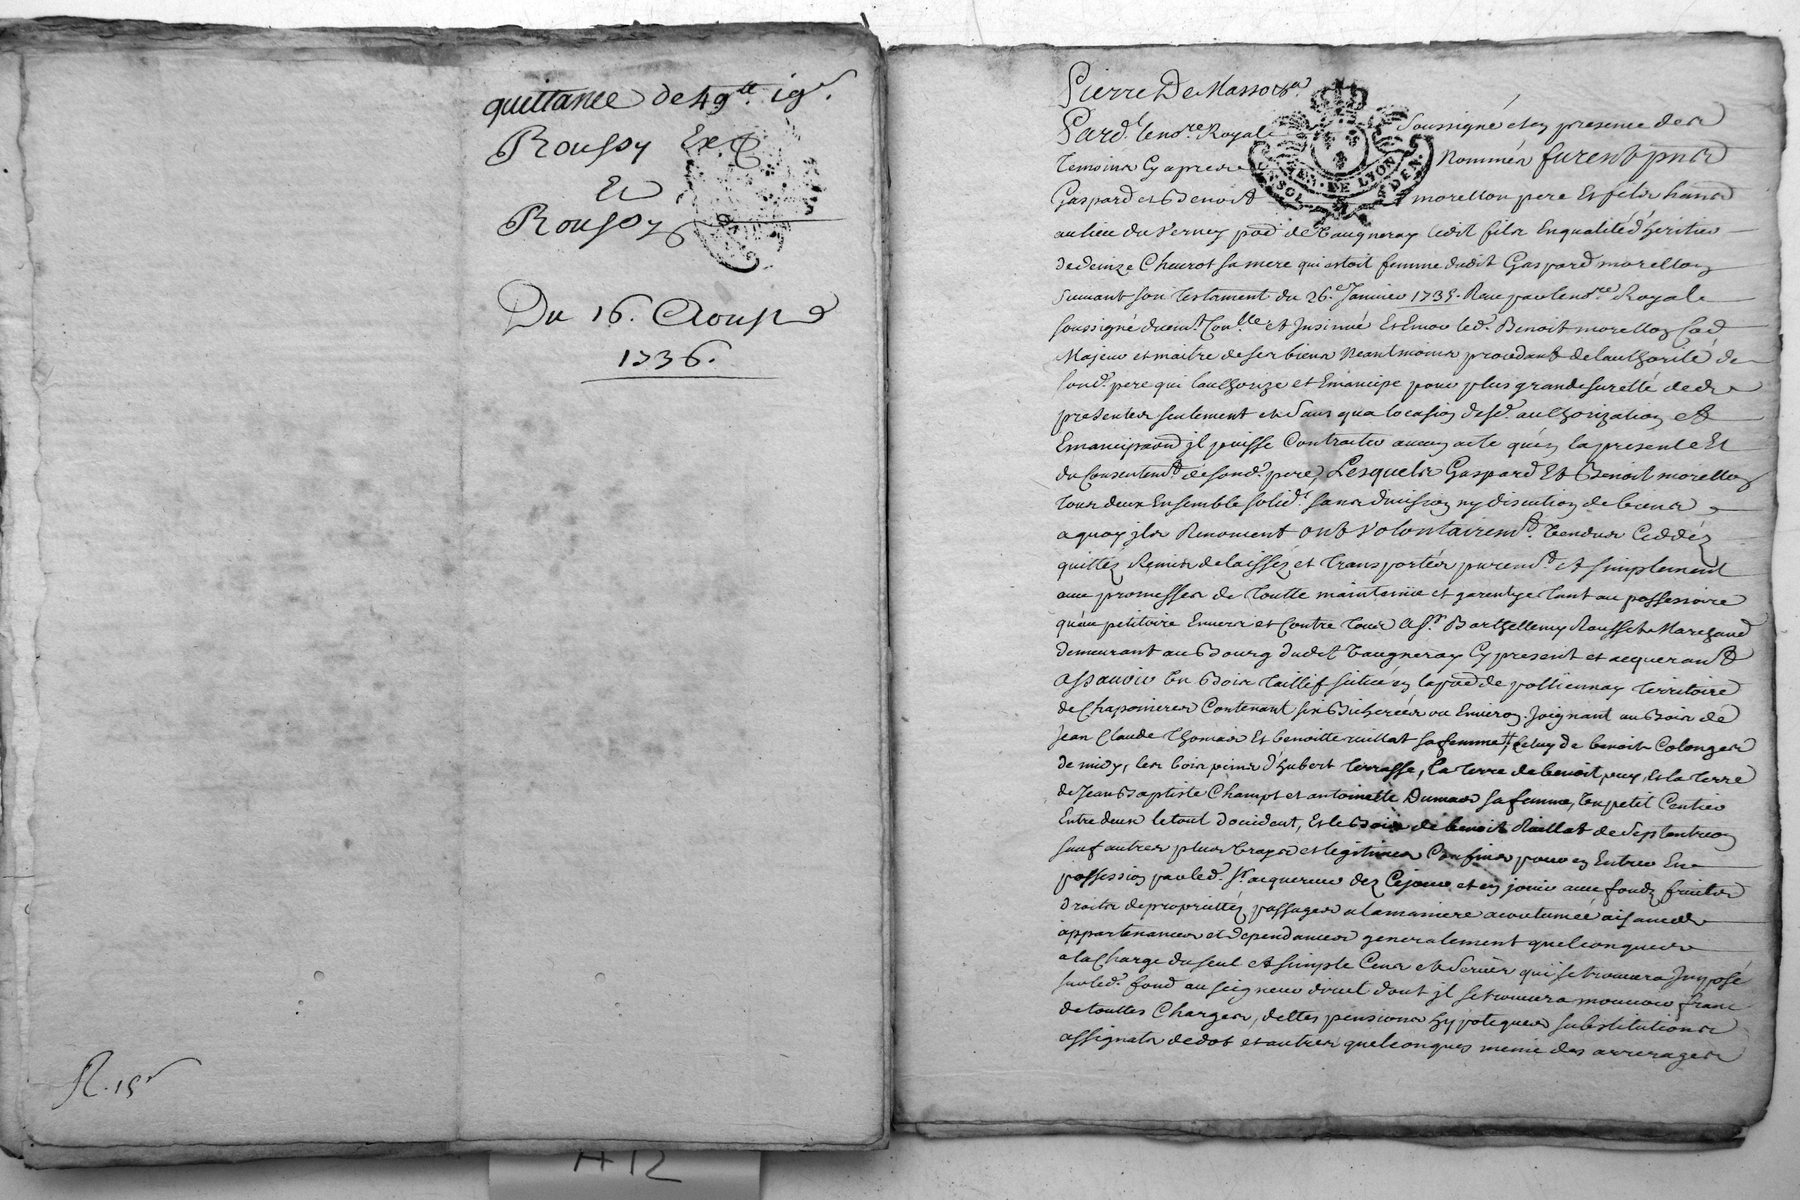 quittance de 49ᵗᵗ 19ˢ.
Roussy
Et
Roussy
Du 16. Aoust
1736.
R. 15ˢ
A12
Pierre De Masso
Pard. le noʳᵉ Royal Soussigné et en presence des
Temoins cy apres Nommés furent pnts
GEN. DE LYON
Gaspard et Benoit morellon pere et fils hants
au lieu du Verney psse de Vaugneray ledit fils En qualité d'heritier
de deinze Cheurot sa mere qui estoit femme dudit Gaspard morellon
suivant son testament du 26.ᵉ Janvier 1735. Receu par le noʳᵉ Royal
soussigné et Insinué Et Encor led. Benoit morellon
Majeur et maitre de ses biens Neantmoins procedant de l'authorité de
sond. pere qui l'authorize et Emancipe pour plus grande suretté des
presentes seulement et sans qu'a l'ocasion desd. authorization et
Emancipaõn jl puisse Contracter aucun acte qu'en la presente Et
du Consentemᵗ de sond. pere, Lesquels Gaspard Et Benoit morellon
tous deux Ensemble solidᵗ sans division ny discution de biens
a quoy jls Renoncent ont volontairemᵗ Vendus Ceddéz
quittéz Remis delaisséz et transportés puremᵗ et simplement
avec promesses de toutte maintenüe et garentye tant au possessoire
qu'au petitoire Envers et Contre tous a Sʳ Barthellemy Rousset Marchand
demeurant au Bourg dudit Vaugneray Cy present et acquerant
assavoir Un Bois taillif scitüé en la psse de pollionnay territoire
de Chaponieres Contenant six Bicherées ou Environ. Joignant au Bois de
Jean Claude Thomas Et benoitte rullat sa femme, Celuy de benoit Colonges
de midy, les bois pins d'hubert terrasse, la terre de benoit puy, Et la terre
de Jean Baptiste Champt et antoinette Dumas sa femme, Un petit Centier
Entre deux le tout d'occident, Et le Bois de benoit Raillat de Septentrion
sauf autres plus vrayes et legitimes Confins pour en Entrer En
possession par led. Sʳ acquereur dez Cejour et en jouir avec fondz fruits
droits de proprietez passages a la maniere acoutumée aisances
appartenances et dependances generalement quelconques
a la Charge du seul et simple Cens et Servis qui se trouvera Imposé
sur led. fond au seigneur direct dont jl se trouvera mouvoir franc
de touttes Charges, dettes pensions hypoteques substitutions
assignats de dot et autres quelconques meme des arrerages